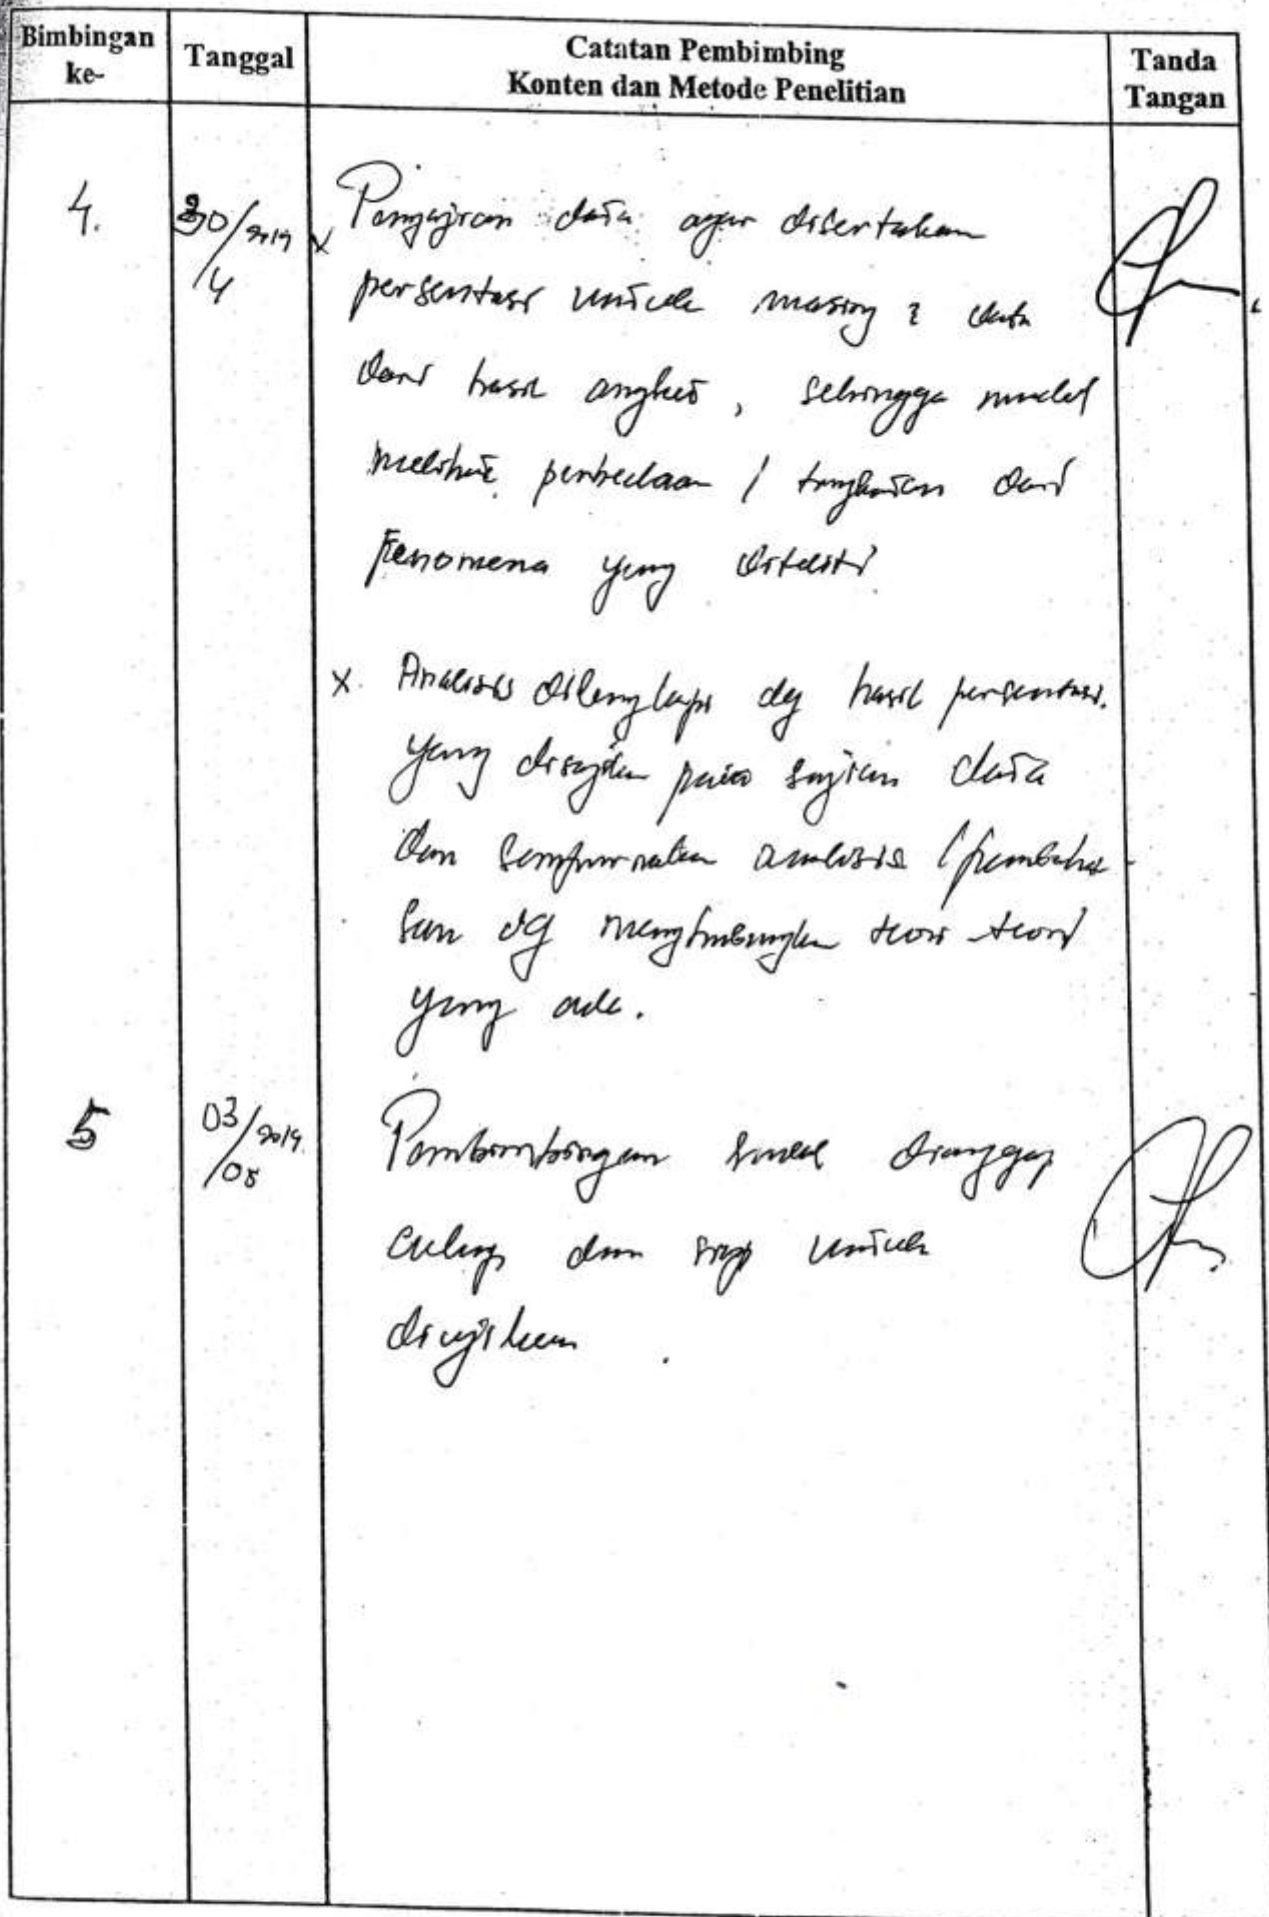 Bimbingan ke-
Tanggal
Catatan Pembimbing
Konten dan Metode Penelitian
Tanda Tangan
4.
30/2019
/4
x Penyajian data agar disertakan
persentasi untuk masing 2 data
dari hasil angket, sehingga mudah
melihat perbedaan / tingkatan dari
Fenomena yang diteliti
x. Analisis dilengkapi dg hasil persentasi.
yang disajikan pada sajian data
dan sempurnakan analisis / pembaha-
san dg menghubungkan teori-teori
yang ada.
5
03/2019.
/05
Pembimbingan sudah dianggap
cukup dan siap untuk
diujikan.